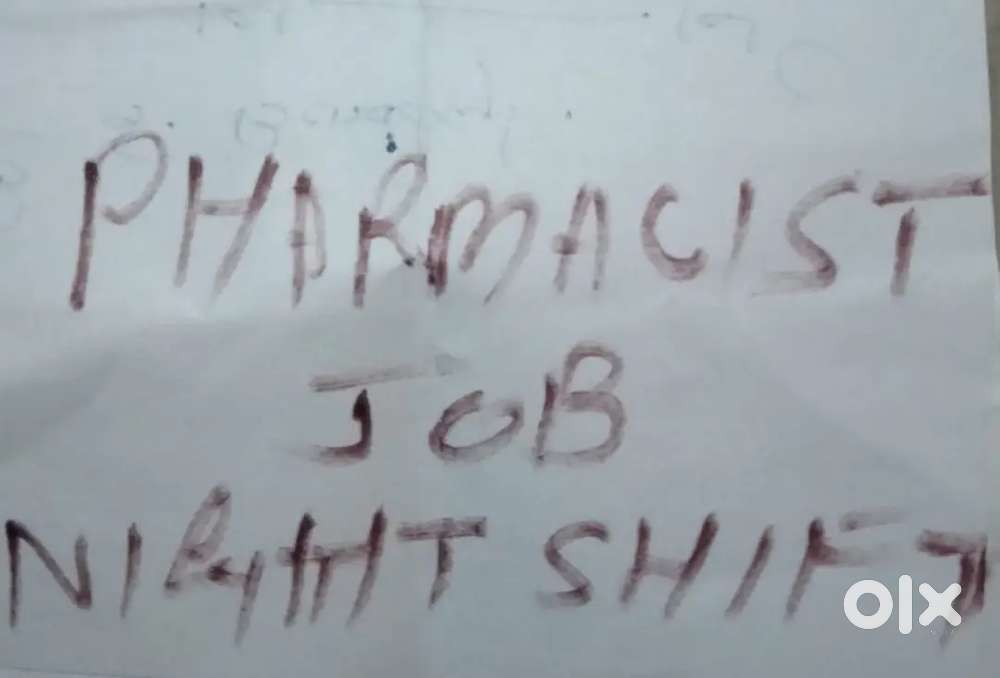 PHARMACIST
JOB
NIGHT SHIFT
olx